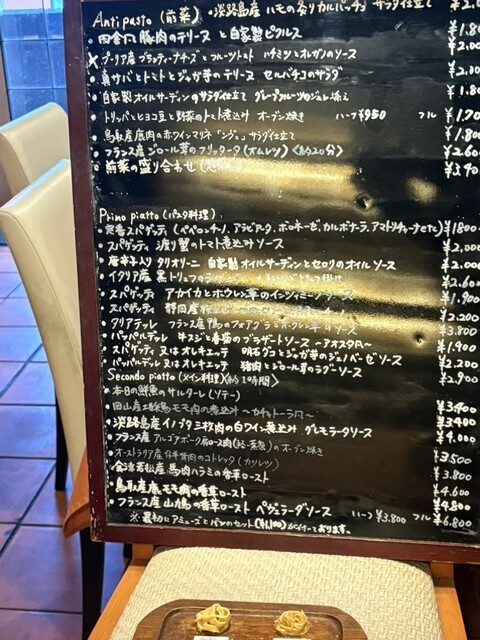 Antipasto (前菜) ・淡路島産 ハモの炙りカルパッチョ サラダ仕立て ¥2.0
・田舎風豚肉のテリーヌ と自家製ピクルス ¥1.80
プーリア産 ブラッティーナチーズとフルーツトマト ハチミツとオレガノのソース ¥2.00
・真サバとトマトとジャガ芋のテリーヌ セルバチコのサラダ ¥2.00
・自家製オイルサーディンのサラダ仕立て グレープフルーツのジュレ添え ¥1.80
・トリッパとヒヨコ豆と野菜のトマト煮込み オーブン焼き ハーフ¥950 フル ¥1.70
・鳥取産鹿肉の赤ワインマリネ "シンタ" サラダ仕立て ¥1.800
・フランス産ジロール茸のフリッタータ(オムレツ) <約20分> ¥2.600
・前菜の盛り合わせ ¥3.900
Primo piatto (パスタ料理)
・定番スパゲッティ (ペペロンチーノ、アラビアータ、ボロネーゼ、カルボナーラ、アマトリチャーナetc) ¥1800
・スパゲッティ 渡り蟹のトマト煮込みソース ¥2,000
・唐辛子入りタリオリーニ 自家製オイルサーディンとセロリのオイルソース ¥2.000
・イタリア産 黒トリュフの ¥2.600
・スパゲッティ アカイカとホウレン草のインジャミーノソース ¥1.900
・スパゲッティ 静岡産桜 ¥2.200
・タリアテッレ フランス産鴨のフォアグラとホウレン草のソース ¥3.800
・パッパルデッレ 牛スジと春菊のブラザートソース 〜アオスタ風〜 ¥1.900
・スパゲッティ 又は オレキエッテ 明石ダコとジャガ芋のジェノベーゼソース ¥2.200
・パッパルデッレ 又は オレキエッテ 猪肉とジロール茸のラグーソース ¥2.900
Secondo piatto (メイン料理) <約1時間>
・本日の鮮魚のサルターレ (ソテー) ¥3.400
・岡山産 モモ肉の煮込み 〜カチャトーラ風〜 ¥3.400
・淡路島産イノブタ三枚肉の白ワイン煮込み グレモラータソース ¥4.000
・フランス産 アルゴアポーク肩ロース肉 のオーブン焼き ¥3500
・オーストラリア産仔羊背肉のコトレッタ (カツレツ) ¥3.800
・会津若松産 馬肉ハラミの香草ロースト ¥4.600
・鳥取産鹿モモ肉の香草ロースト ¥4.800
・フランス産山鳩の香草ロースト ペヴェラーダソース ハーフ ¥3.800 フル ¥6.800
※最初にアミューズとパンのセット(¥1,100)が付いております。